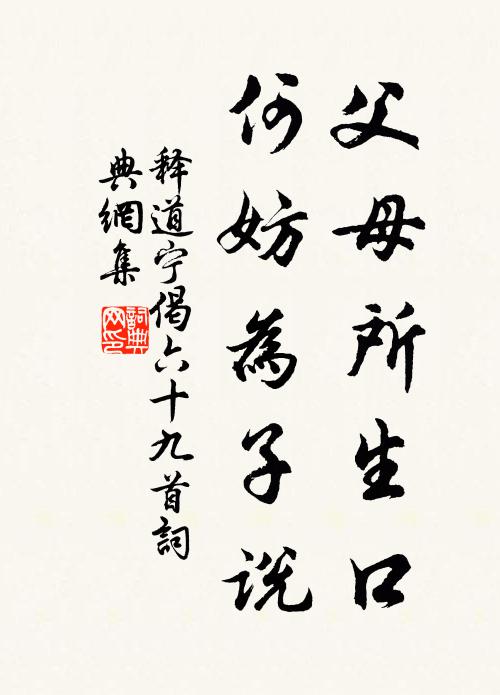 父母所生口
何妨為子説
释道宁偈六十九首詞
典網集
詞典网印